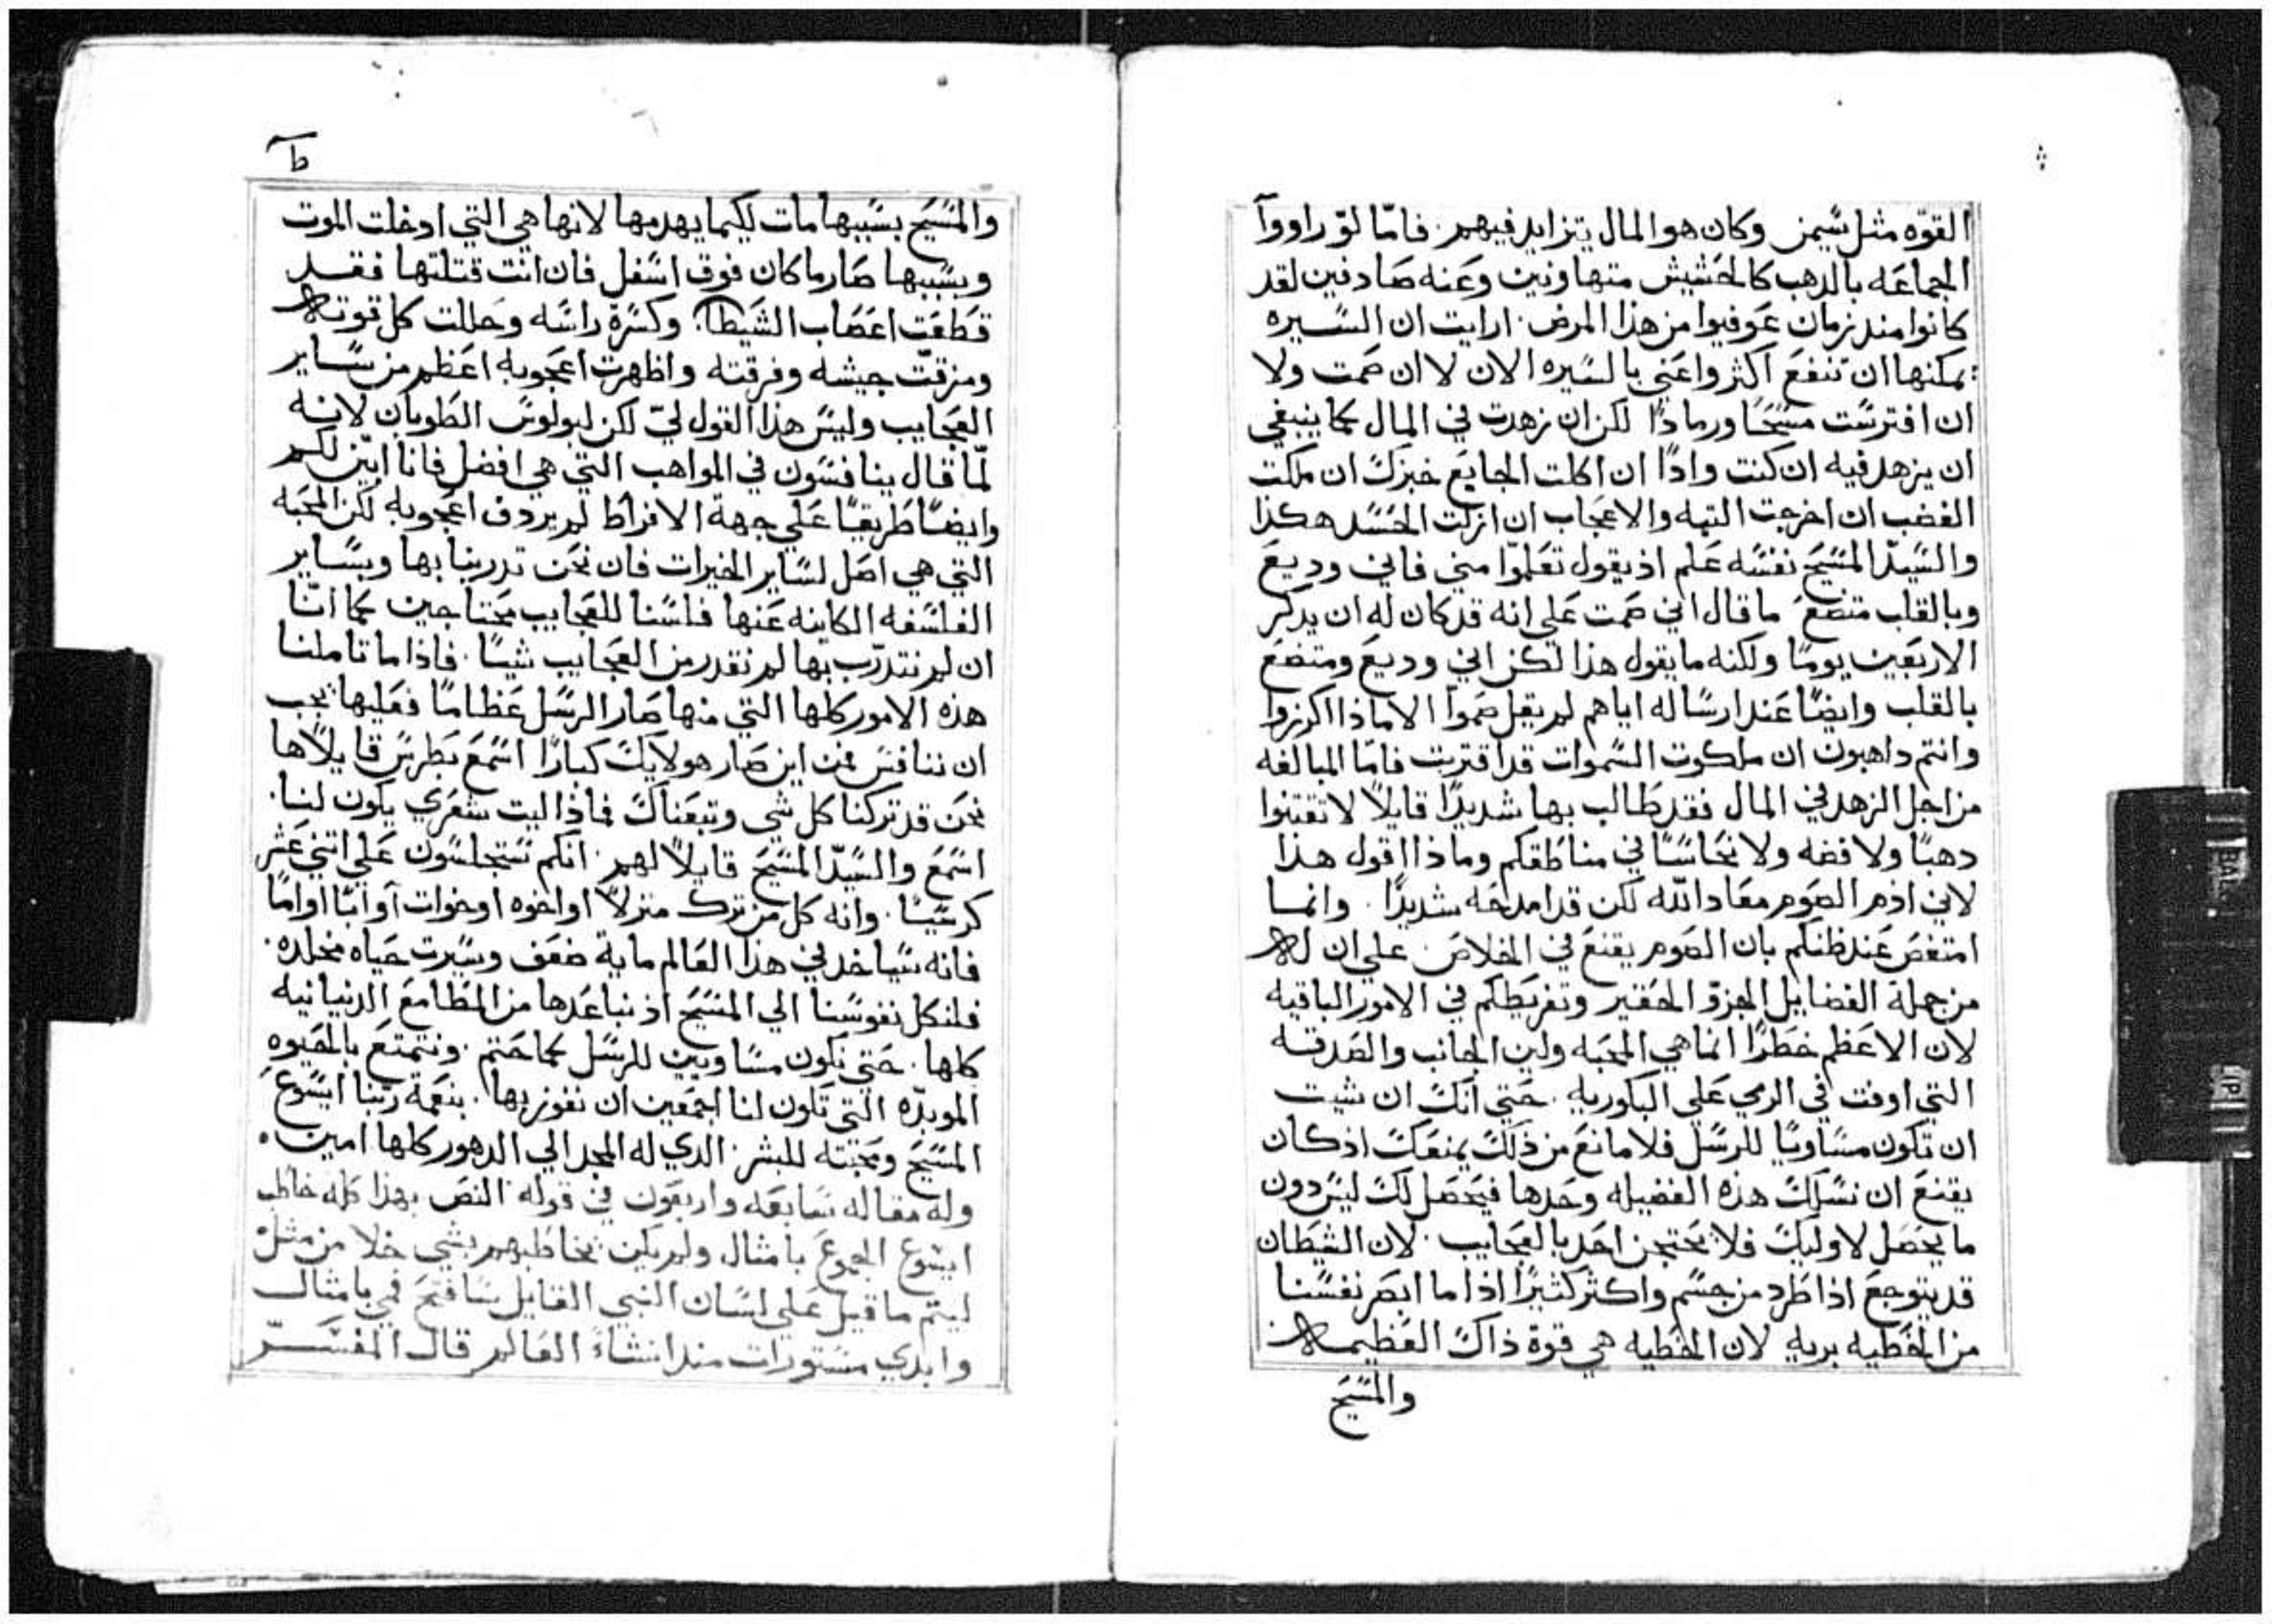 القوّه مثل سيمن وكان هو المال يتزايد فيهم. فامّا لوّ راووآ
الجماعه بالدهب كالحشيش متهاونين وعنه صادفين لقد
كانوا مند زمان عوفيوا من هذا المرض. ارايت ان السيره
يمكنها ان تنفع اكثر واعني بالسيره الان لا ان صمت ولا
ان افترست مسحًا ورمادًا لكن ان زهدت في المال كما ينبغي
ان يزهد فيه ان كنت وادًا ان اكلت الجايع خبزك ان ملكت
الغضب ان اخرجت التيه والاعجاب ان ازلت الحسد هكذا
والسيّد المسيح نفسه علم اذ يقول تعلموّا مني فاني وديع
وبالقلب متضع ما قال اني صمت علي انه قد كان له ان يدكر
الاربعين يومًا ولكنه ما يقول هذا لكن اني وديع ومتضع
بالقلب وايضًا عند ارساله اياهم لم يقل صموآ الا ماذا اكرزوا
وانتم داهبون ان ملكوت السموات قد اقتربت فامّا المبالغه
من اجل الزهد في المال فقد طالب بها شديدًا قايلاً لا تقتنوا
دهبًا ولا فضه ولا نحاسًا في مناطقكم وماذا اقول هذا
لاني اذم الصوم معاد الله لكن قد امدحه شديدًا. وانما
امتغص عند ظنكم بان الصوم يقنع في الخلاص علي ان له
من جملة الفضايل الجزوّ الحقير وتفريطكم في الامور الباقيه
لان الاعظم خطرًا انما هي المحبه ولين الجانب والصدقه
التي اوفت في الرمي علي البكوريه. حتي انك ان شيت
ان تكون مساويًا للرسل فلا مانع من ذلك يمنعك اذ كان
يقنع ان نسلك هذه الفضيله وحدها فيحصل لك ليس دون
ما يحصل لاوليك فلا يحتجن احد بالعجايب. لان الشيطان
قد يتوجع اذا طرد من جسم واكثر كثيرًا اذا ما ابصر نفسنا
من الخطيه بريه لان الخطيه هي قوة ذاك العظيمه
والمسيح
ط
والمسيح بسببها مات لكيما يهدمها لانها هي التي ادخلت الموت
وبسببها صار ما كان فوق اسفل فان انت قتلتها فقد
قطعت اعصاب الشيطان وكسرة راسه وحللت كل قوته
ومزقتّ جيشه وفرقته واظهرت اعجوبه اعظم من ساير
العجايب وليس هذا القول ليّ لكن لبولوس الطوبان لانه
لمّا قال ينافسون في المواهب التي هي افضل فانا ابيّن لكم
وايضًا طريقًا علي جهة الافراط لم يردف اعجوبه لكن المحبه
التي هي اصل لساير الخيرات فان نحن تدربنا بها وبساير
الفلسفه الكاينه عنها فلسنا للعجايب محتاجين كما انّنا
ان لم نتدرّب بها لم نقدر من العجايب شيًا. فاذا ما تاملنا
هذه الامور كلها التي منها صار الرسل عظامًا فعليها يجب
ان ننافس فمن اين صار هولايك كبارًا اسمع بطرس قايلاً ها
نحن قد تركنا كل شي وتبعناك فماذا ليت شعري يكون لنا.
اسمع والسيّد المسيح قايلاً لهم. انكم ستجلسون علي اتني عشر
كرسيًا. وانه كل من ترك منزلاً او اخوه او خوات او ابًا او امًا
فانه سيا خد في هذا العالم ماية ضعف وسيرت حياه مخلده.
فلنكل نفوسنا الي المسيح اذ نباعدها من المطامع الدنيانيه
كلها. حتي نكون مساويين للرسل كما حتم. ونتمتع بالحيوه
الموبدّه التي تكون لنا اجمعين ان نفوز بها. بنعمة ربّنا ايسوع
المسيح ومحبته للبشر. الدي له المجد الي الدهور كلها امين.
وله مقاله سابعه واربعون في قوله النص بهذا كله خاطب
ايسوع الجموع بامثال ولم يكن يخاطبهم بشي خلا من مثل
ليتم ما قيل علي لسان النبي القايل سافتح فمي بامثال
وابدي مستورات مند انشاء العالم قال المفسّر